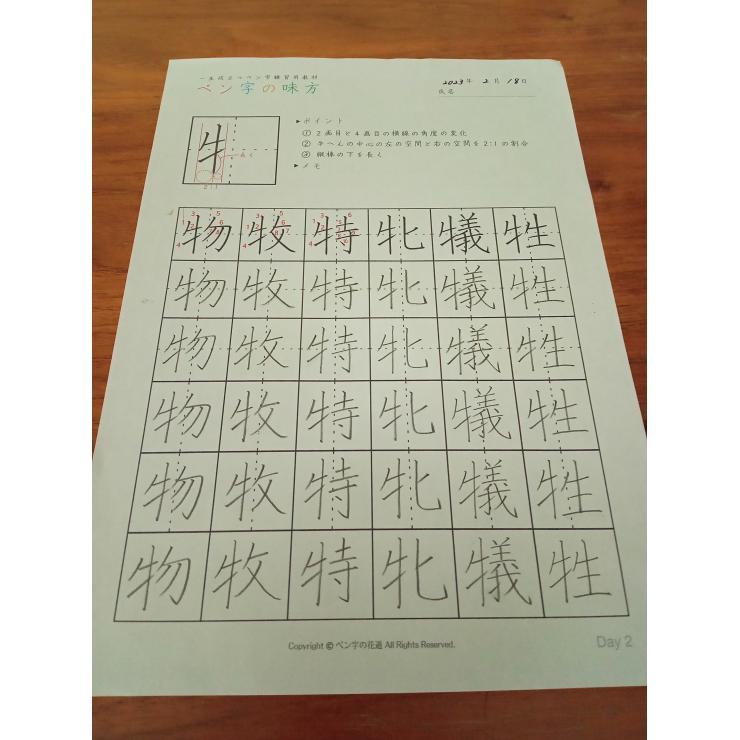 一生役立つペン字練習用教材
ペン字の味方
2023年 2月 18日
氏名
牜
長く
2:1
▶ポイント
① 2画目と4画目の横線の角度の変化
② 牛へんの中心の左の空間と右の空間を2:1の割合
③ 縦棒の下を長く
▶メモ
物 牧 特 牝 犠 牲
物 牧 特 牝 犠 牲
物 牧 特 牝 犠 牲
物 牧 特 牝 犠 牲
物 牧 特 牝 犠 牲
物 牧 特 牝 犠 牲
Copyright © ペン字の花道 All Rights Reserved.
Day 2